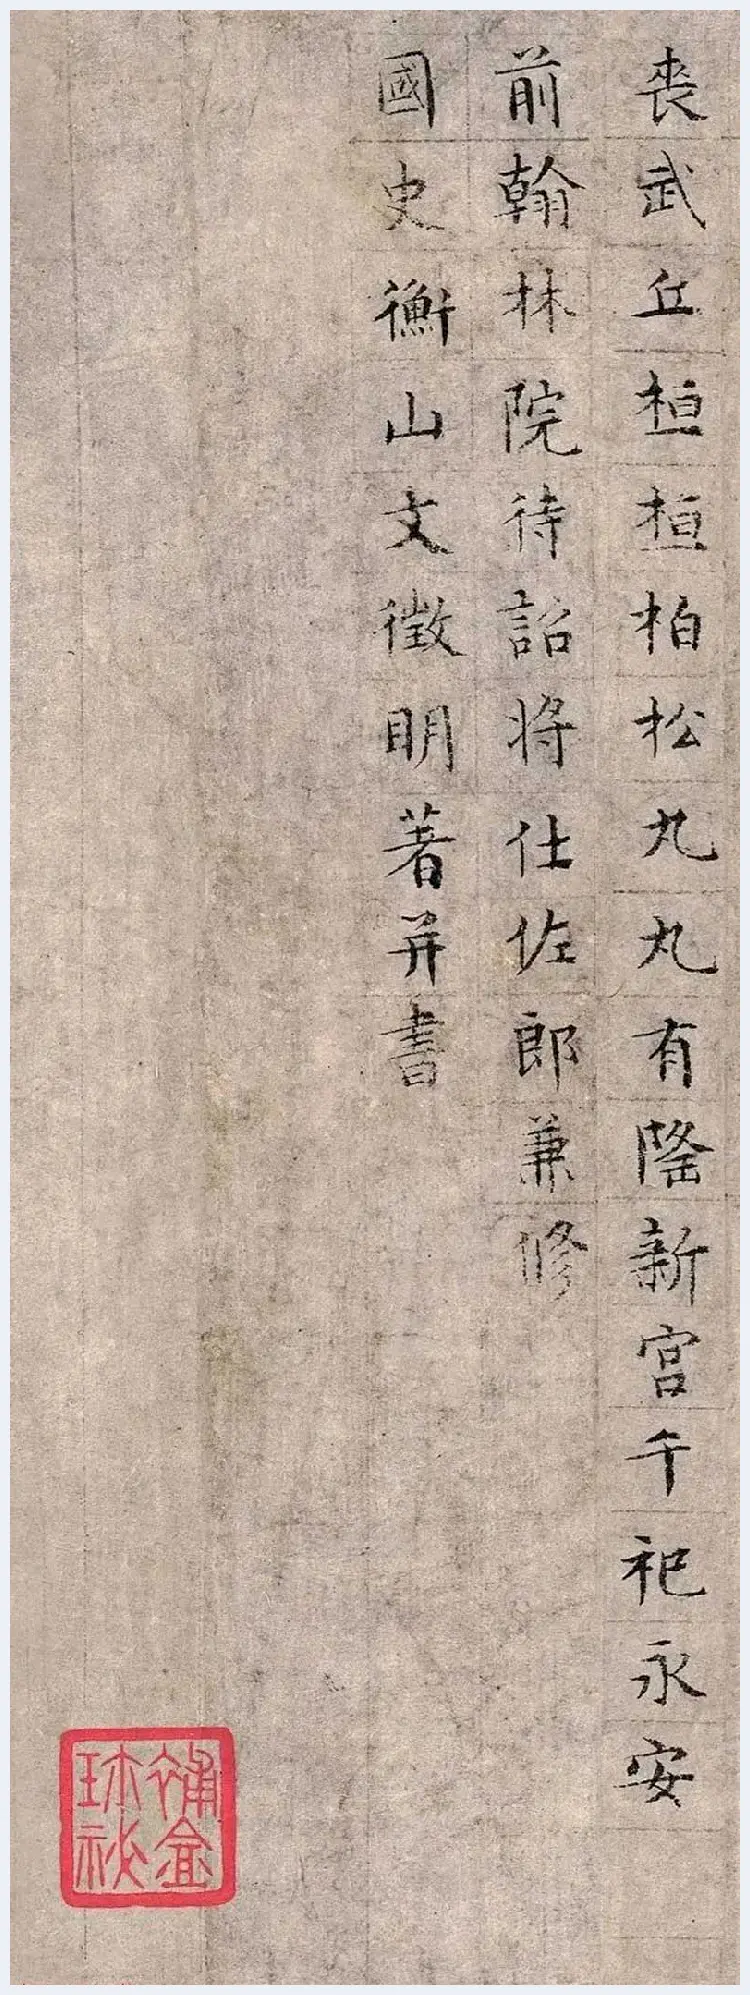 喪武丘桓桓柏松丸丸有隆新宮千祀永安
前翰林院待詔将仕佐郎兼修
國史衡山文徵明著并書